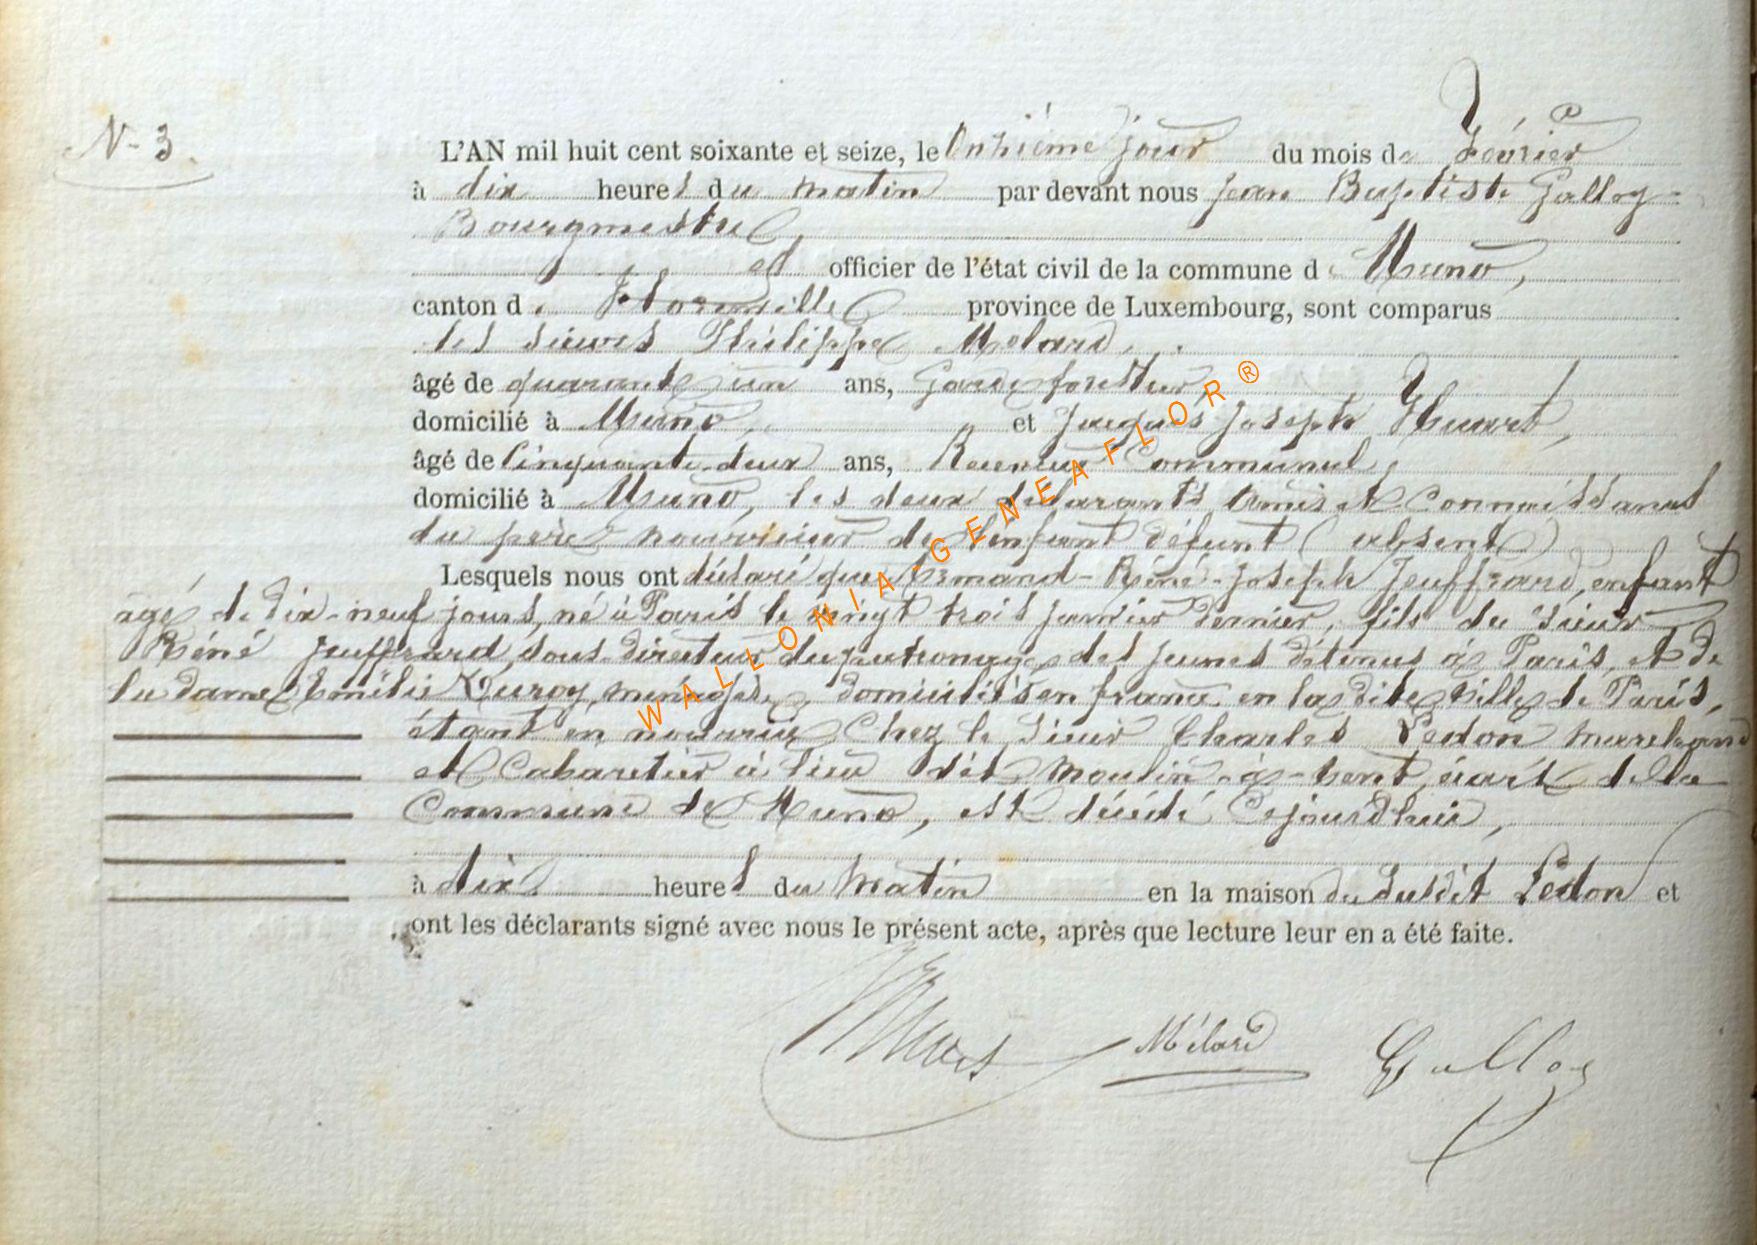 N- 3.
L'AN mil huit cent soixante et seize, le Onzième jour du mois de Février
à dix heures du matin par devant nous Jean Baptiste Galloy
Bourgmestre
et officier de l'état civil de la commune de Muno,
canton de Florenville province de Luxembourg, sont comparus
les sieurs Philippe Melard,
âgé de quarante un ans, Garde forestier,
domicilié à Muno, et Jacques Joseph Huart,
âgé de Cinquante-deux ans, Receveur Communal,
domicilié à Muno, les deux déclarants amis et connaissances
du père nourricier de l'enfant défunt (absent)
Lesquels nous ont déclaré que Armand-Réné-Joseph Jeuffrard, enfant
âgé de dix-neuf jours, né à Paris le vingt trois Janvier dernier, fils du sieur
Réné Jeuffrard, sous-directeur du patronage des jeunes détenus à Paris, et de
la dame Emilie Duroy, ménagère, domiciliés en france en la dite ville de Paris,
étant en nourrice Chez le sieur Charles Ledon marchand
et Cabaretier à lieu dit Moulin-à-vent, écart de la
Commune de Muno, est décédé Cejourd'hui,
à dix heures du matin en la maison du susdit Ledon et
ont les déclarants signé avec nous le présent acte, après que lecture leur en a été faite.
Huart Mélard Galloy
WALLONIA-GENEAFLOR®